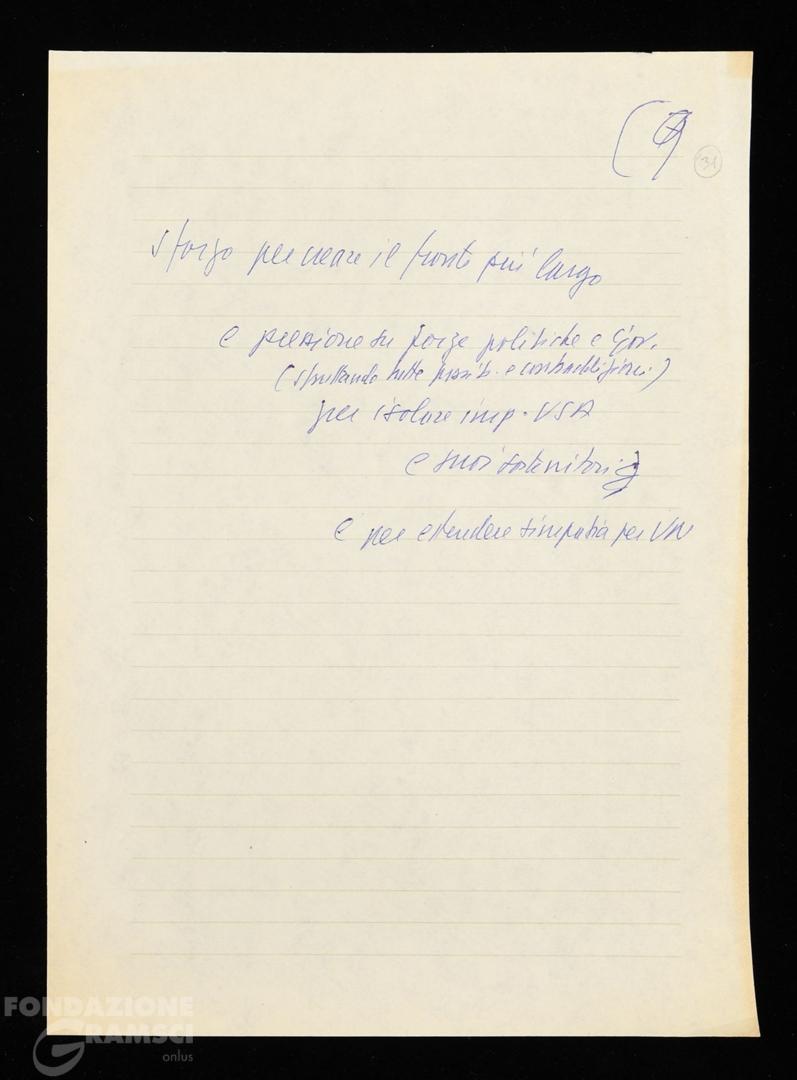 31
sforzo per creare il fronte più largo
e pressione su forze politiche e Gov.
(sfruttando tutte possib. e contraddizioni)
per isolare imp. USA
e suoi sostenitori
e per estendere simpatia per VN
FONDAZIONE
GRAMSCI
onlus